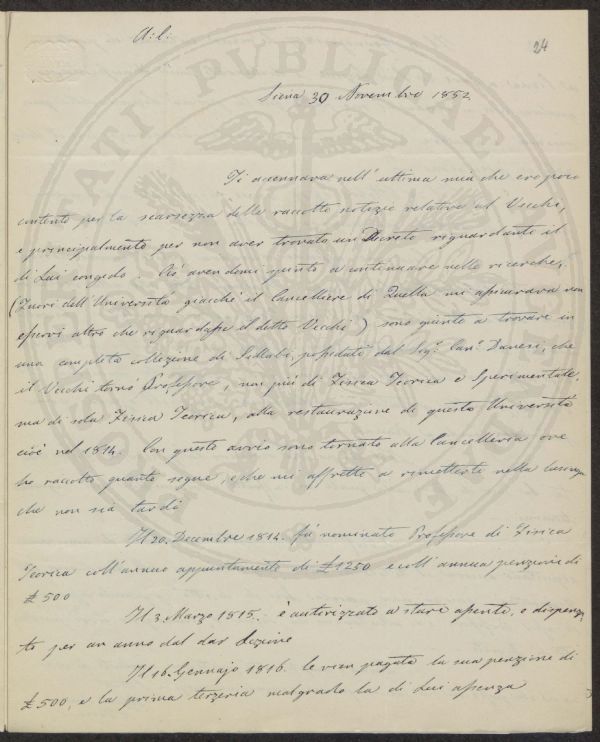 A: C:
24
Siena 30 Novembre 1852
Ti accennava nell' ultima mia che ero poco
contento per la scarsezza delle raccolte notizie relative al Vecchi,
e principalmente per non aver trovato un Decreto riguardante al
di Lui congedo. Ciò avendomi spinto a continuare nelle ricerche,
(fuori dell' Università giacchè il Cancelliere di Quella mi assicurava non
esservi altro che riguardasse il detto Vecchi) sono giunto a trovare in
una completa collezione di Sillabi, posseduti dal Sigr. Canco. Danesi, che
il Vecchi tornò Professore, non più di Fisica Teorica e Sperimentale,
ma di sola Fisica Teorica, alla restaurazione di questa Università
cioè nel 1814. Con questo avviso sono tornato alla Cancelleria ove
ho raccolto quanto segue, e che mi affretto a rimetterti nella lusinga
che non sia tardi
Il 20. Decembre 1814. fù nominato Professore di Fisica
Teorica coll' annuo appuntamento di £ 1250 e coll' annua penzione di
£ 500
Il 3. Marzo 1815. è autorizzato a stare assente, e dispenza-
to per un anno dal dar Lezione
Il 16. Gennajo 1816. le vien pagata la sua penzione di
£ 500, e la prima terzeria malgrado la di Lui assenza